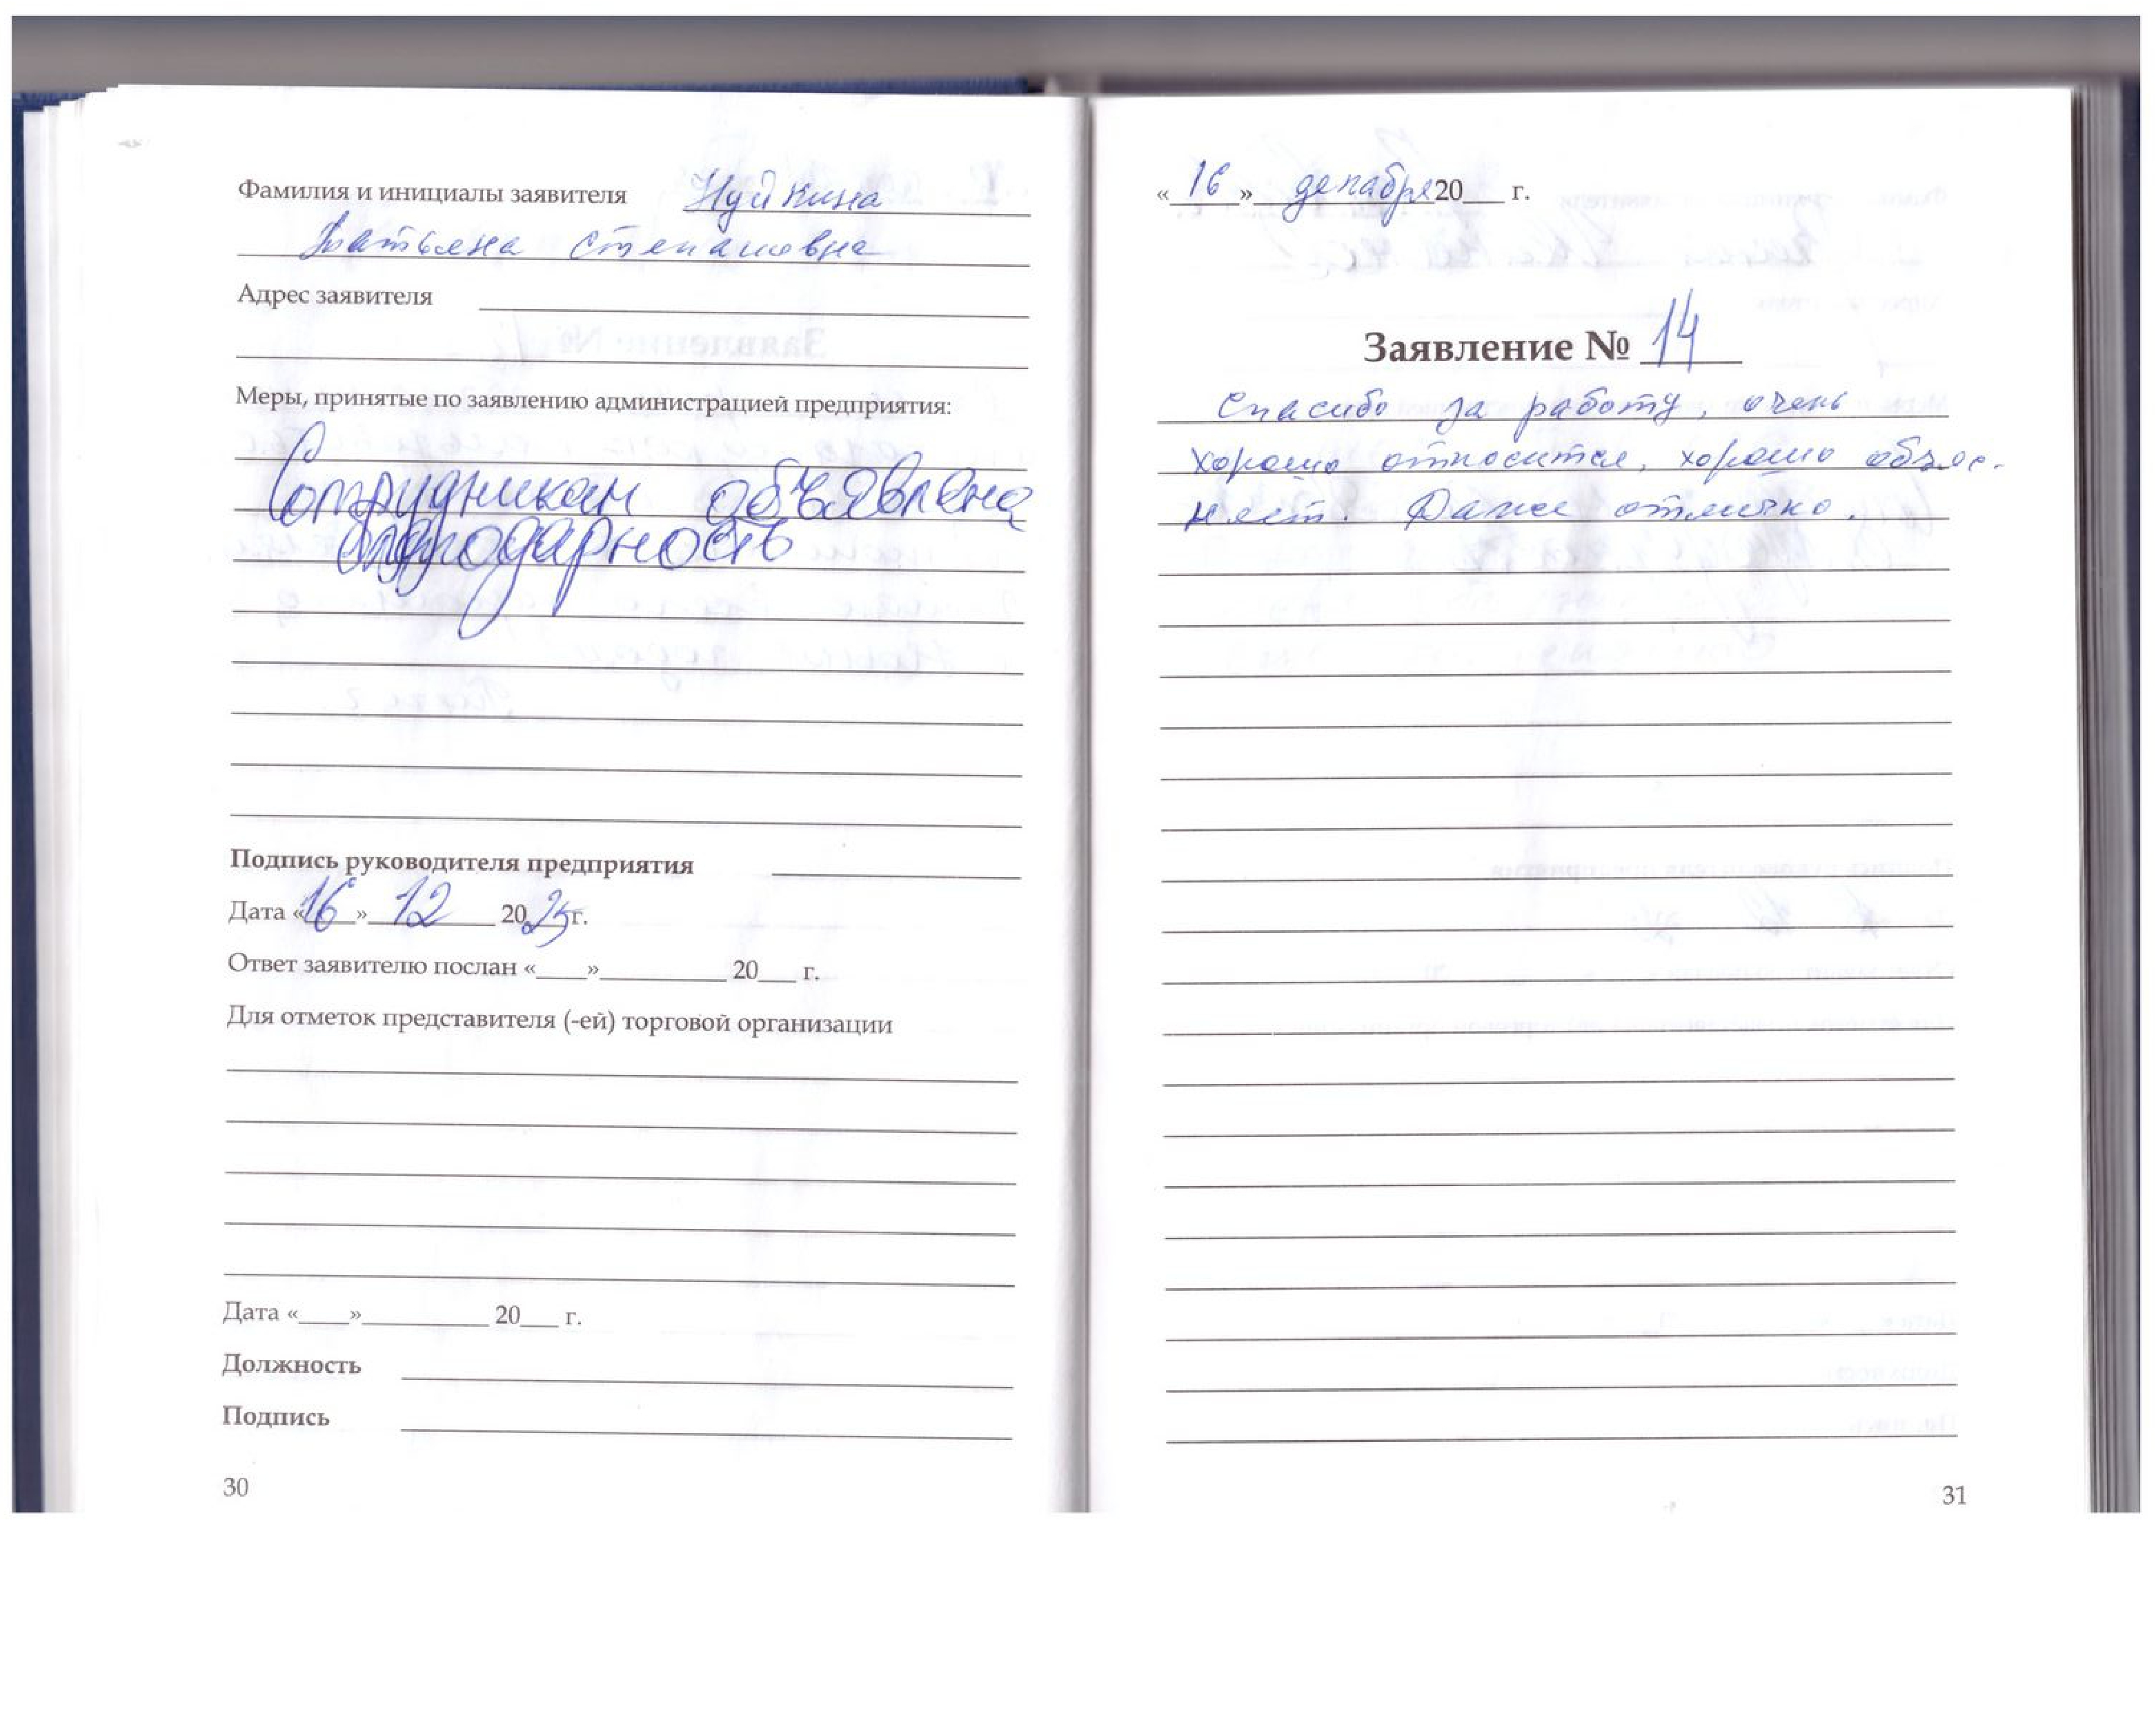 Фамилия и инициалы заявителя Нуйкина
Татьяна Степановна
Адрес заявителя
Меры, принятые по заявлению администрацией предприятия:
Сотрудникам объявлена
благодарность
Подпись руководителя предприятия
Дата «16» 12 2025г.
Ответ заявителю послан «____»__________ 20___ г.
Для отметок представителя (-ей) торговой организации
Дата «____»__________ 20___ г.
Должность
Подпись
30
«16» декабря 20___ г.
Заявление № 14
Спасибо за работу, очень
хорошо относится, хорошо объяс-
няет. Даже отлично.
31